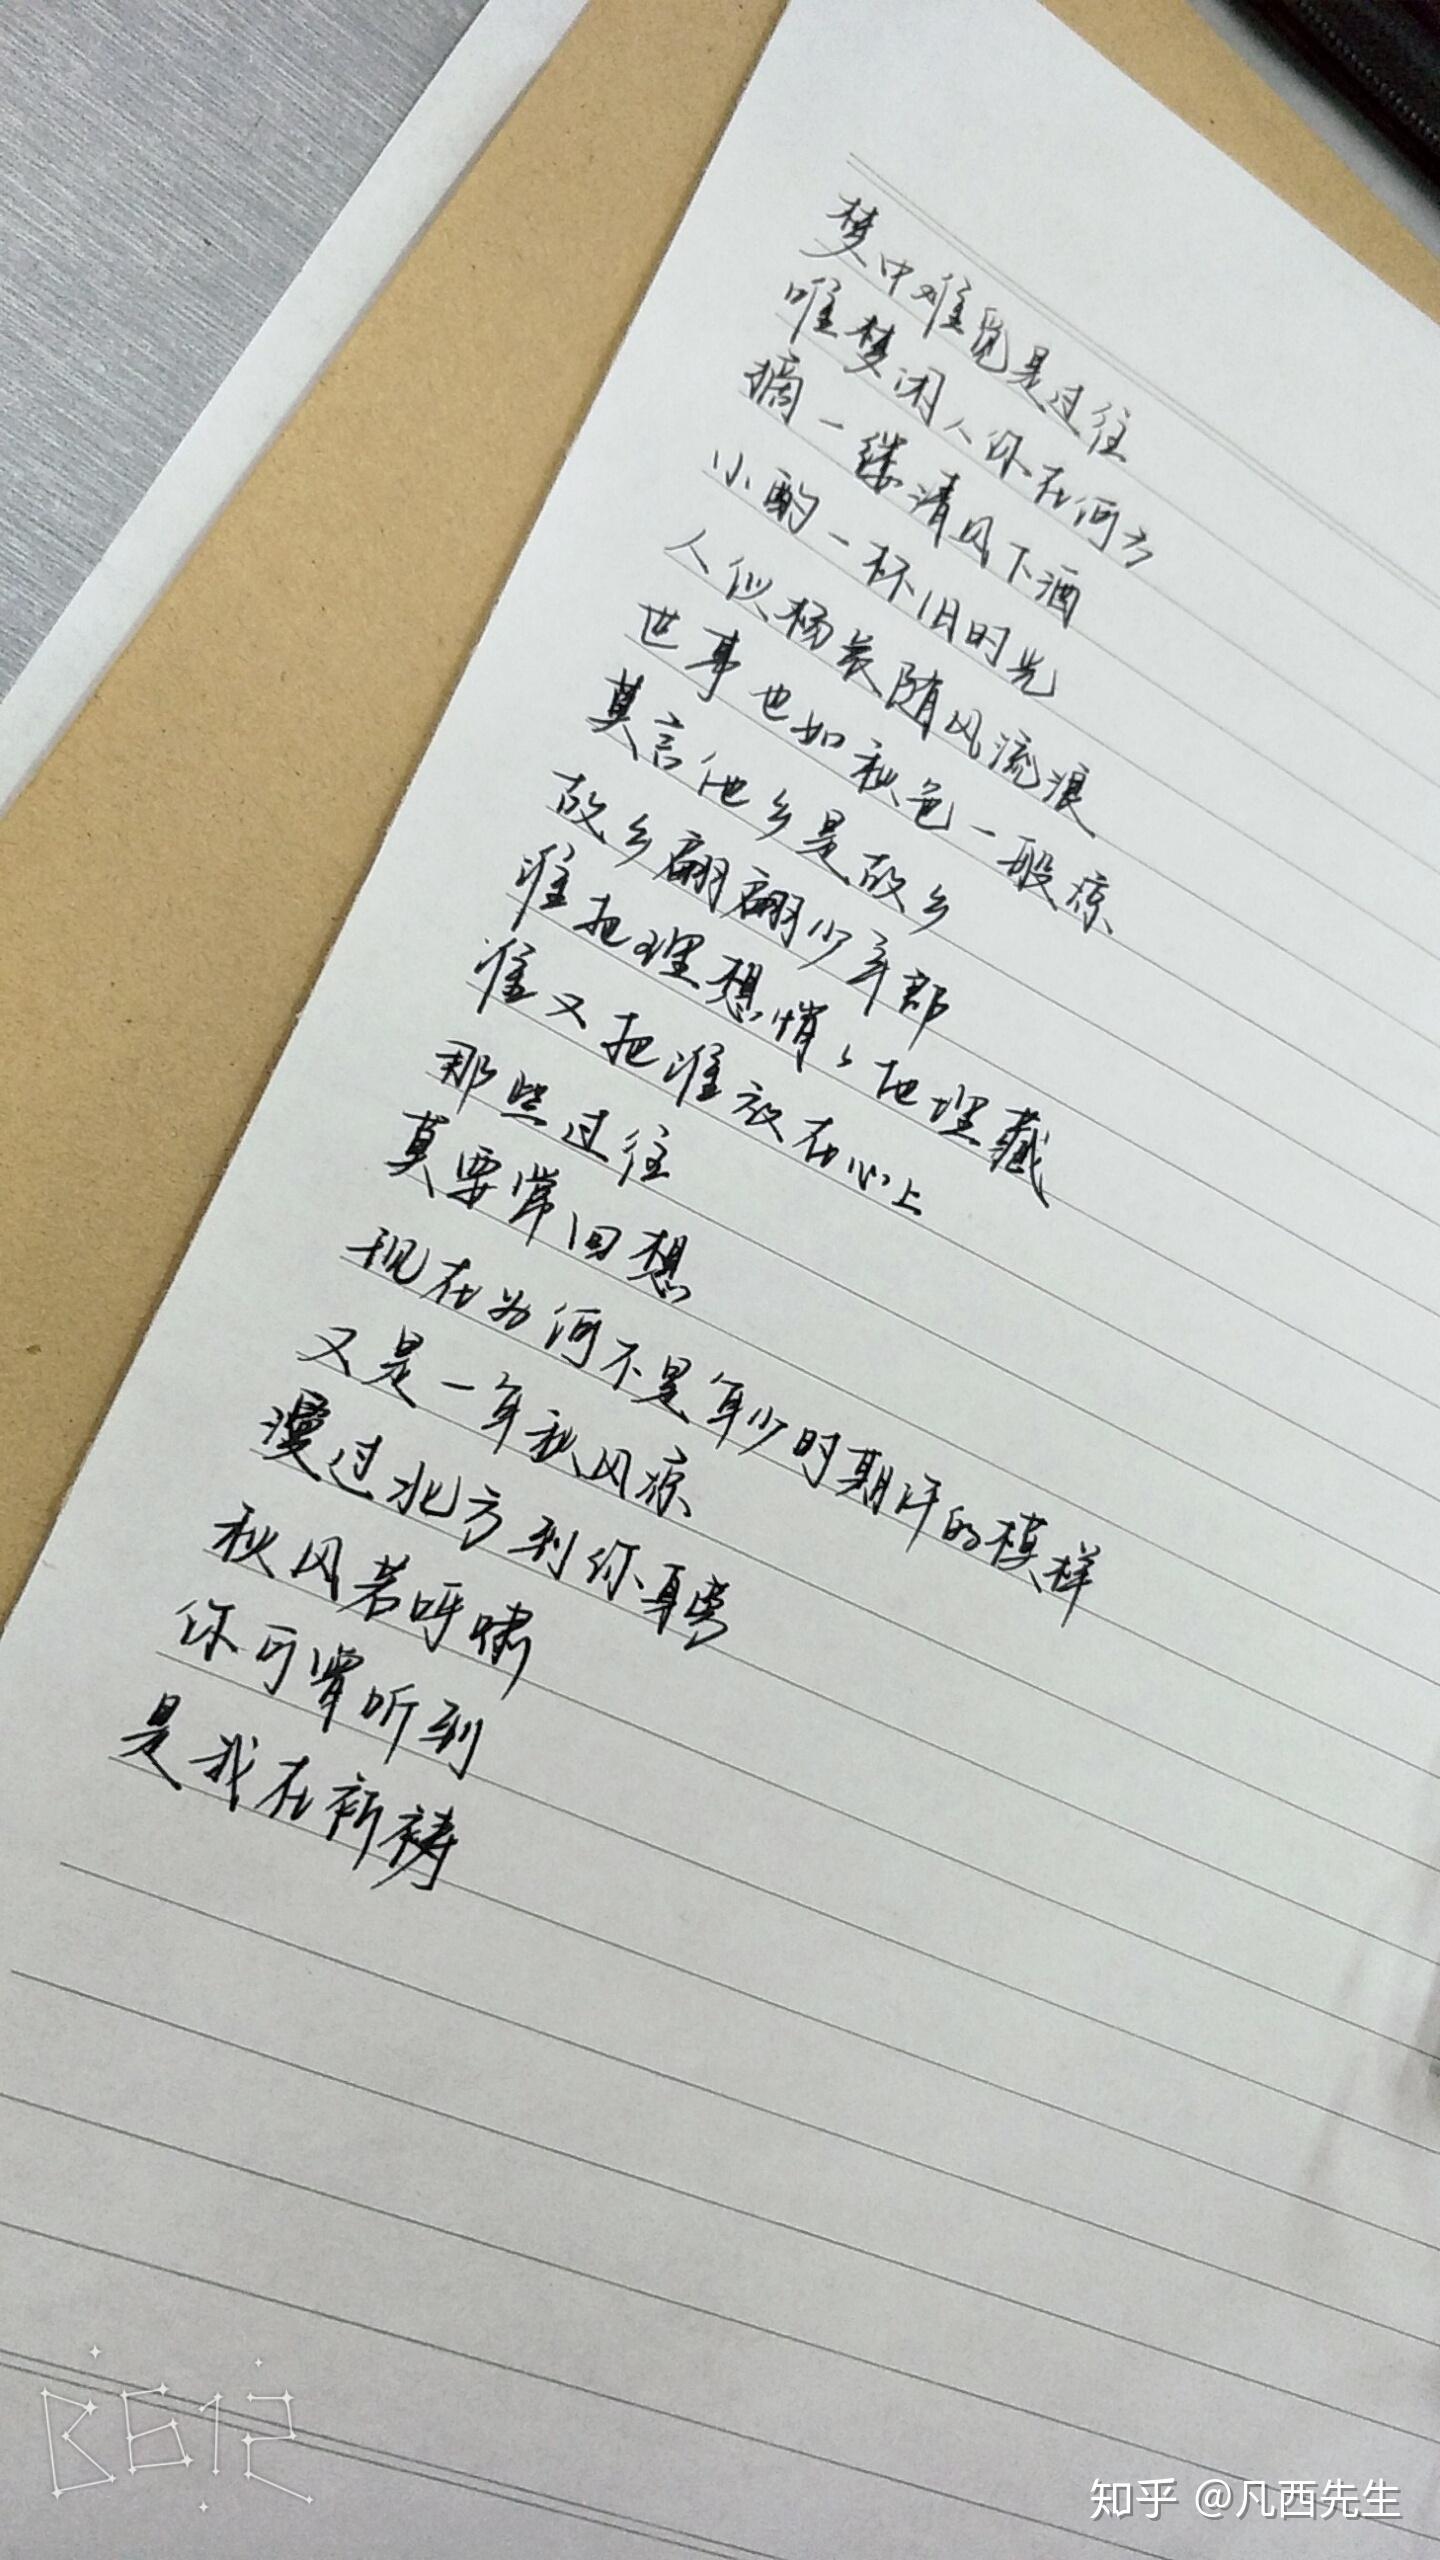 梦中难觅是过往
唯梦闲人你在何方
摘一缕清风下酒
小酌一杯旧时光
人似杨花随风流浪
世事也如秋色一般凉
莫言他乡是故乡
故乡翩翩少年郎
谁把理想悄悄地埋藏
谁又把谁放在心上
那些过往
莫要常回想
现在为何不是年少时期许的模样
又是一年秋风凉
漫过北方到你耳旁
秋风若呼啸
你可曾听到
是我在祈祷
B612
知乎 @凡西先生